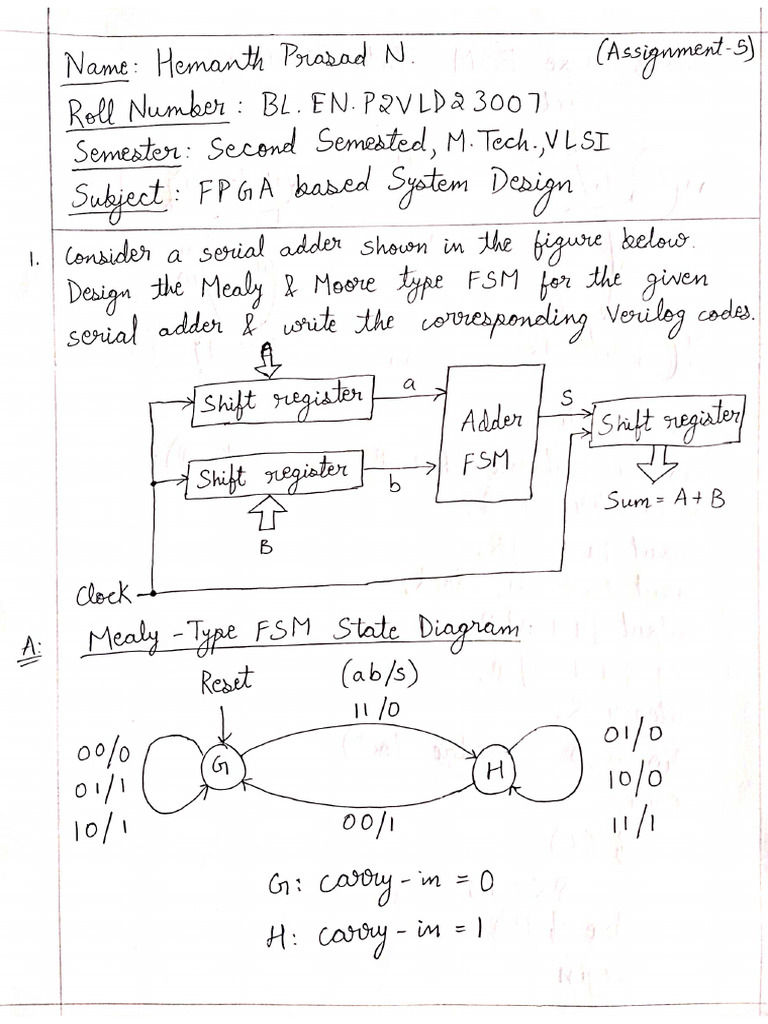 (Assignment-5)
Name: Hemanth Prasad N.
Roll Number: BL.EN.P2VLD23007
Semester: Second Semested, M.Tech.,VLSI
Subject: FPGA based System Design
1. Consider a serial adder shown in the figure below.
Design the Mealy & Moore type FSM for the given
serial adder & write the corresponding Verilog codes.
A
Shift register
a
Adder
FSM
S
Shift register
Shift register
b
Sum = A + B
B
Clock
A: Mealy-Type FSM State Diagram:
Reset
(ab/s)
11/0
00/0
01/1
10/1
G
H
01/0
10/0
11/1
00/1
G: carry-in = 0
H: carry-in = 1